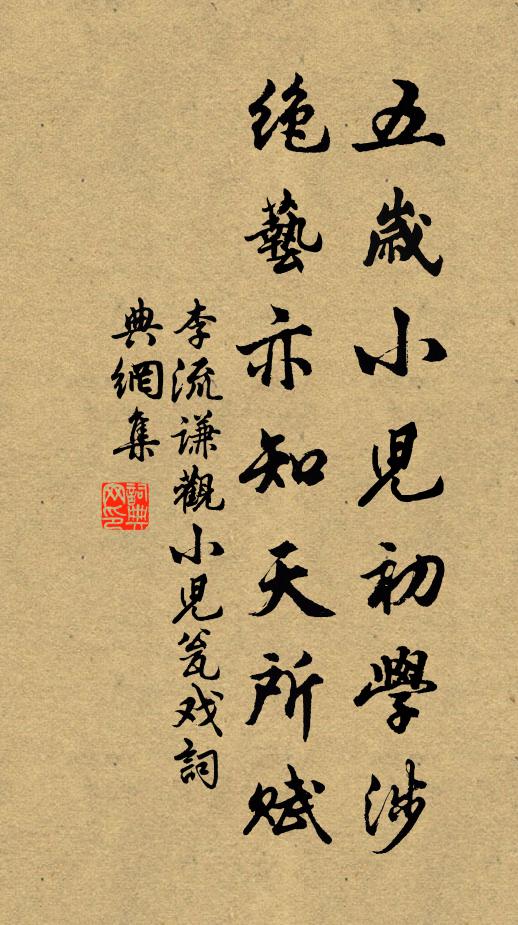 五歲小児初學涉
絶藝亦知天所賦
李流謙觀小児瓮戏詞
典網集
詞典
网印